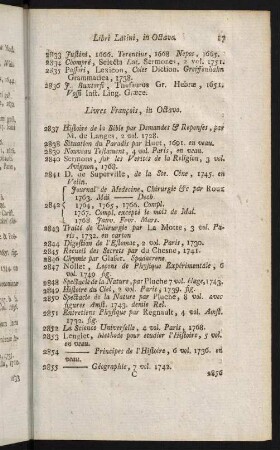 Libri Latini, in Octavo. 17
2833 Justini, 1666. Terentius, 1668 Nepos, 1665.
2834 Ciompré, Selecta Lat. Sermones, 2 vol. 1751.
2835 Passeri, Lexicon, Celer Diction. Greiffenhahn
Grammatica, 1738.
2836 J. Buxtorfi Thesaurus Gr. Hebræ, 1651.
Vossii Inst. Ling. Græce.
Livres François, in Octavo.
2837 Histoire de la Bible par Demandes & Reponses, par
M. de Langes, 2 vol. 1728.
2838 Situation du Paradis par Huet, 1691. en veau.
2839 Nouveau Testament, 4 vol. Paris, en veau.
2840 Sermons, sur les Verités de la Religion, 3 vol.
Avignon, 1768.
2841 D. de Superville, de la Ste. Céne, 1745. en
Velin.
Journal de Medecine, Chirurgie &c par Roux
1763. Mai —— Decb.
2842 1764, 1765, 1766. Compl.
1767. Compl. excepté le mois de Mai.
1768. Janv. Fevr. Mars.
2843 Traité de Chirurgie par La Motte, 3 vol. Pa-
ris, 1732. en carton
2844 Digestion de l'Estomac, 2 vol. Paris, 1730.
2845 Recueil des Secrets par du Chesne, 1741.
2846 Chymie par Glaser.
2847 Nollet, Leçons de Physique Expérimentale, 6
vol. 1749 fig.
2848 Spectacle de la Nature, par Pluche 7 vol. Haye, 1743.
2849 Histoire du Ciel, 2 vol. Paris, 1739. fig.
2850 Spectacle de la Nature par Pluche, 8 vol. avec
figures Amst. 1743. demie Rel.
2851 Entretiens Physique par Regnault, 4 vol. Amst.
1732. fig.
2852 La Science Universelle, 4 vol. Paris, 1768.
2853 Lenglet, methode pour etudier l'Histoire, 5 vol.
en veau.
2854 —— Principes de l'Histoire, 6 vol. 1736. en
veau.
2855 —— Géographie, 7 vol. 1742.
C 2856